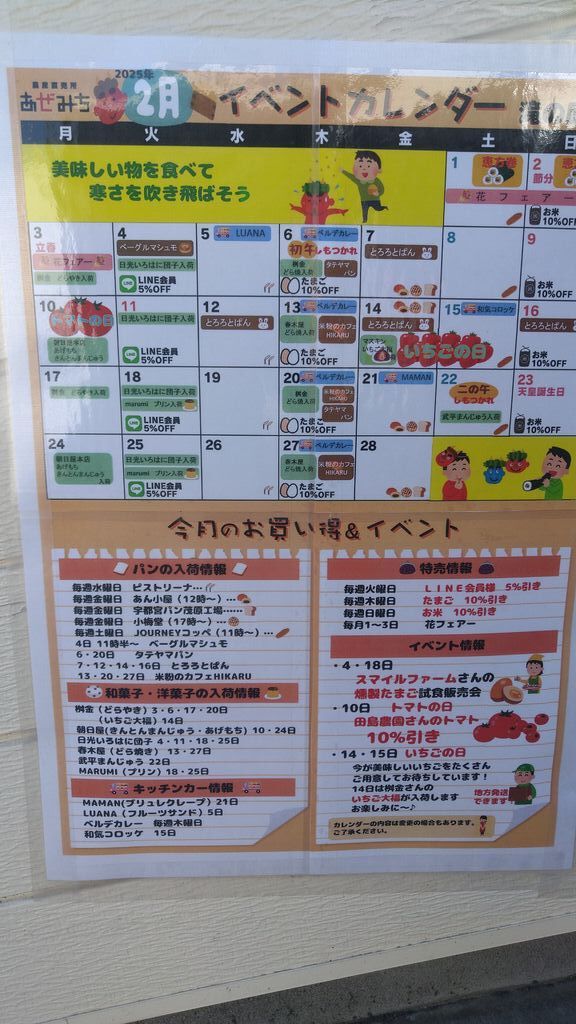 農産直売所
あぜみち
2025年
2月
イベントカレンダー
月 火 水 木 金 土 日
美味しい物を食べて
寒さを吹き飛ばそう
1 恵方巻
2 節分
花フェアー
お米
10%OFF
3
立春
花フェアー
桝金 どらやき入荷
4
ベーグルマシュモ
日光いろはに団子入荷
LINE会員
5%OFF
5 LUANA
6 ベルデカレー
初午しもつかれ
桝金
どら焼入荷
タテヤマ
パン
たまご
10%OFF
7
とろろとぱん
8
9
お米
10%OFF
10
トマトの日
朝日屋本店
あげもち
きんとんまんじゅう
11
日光いろはに団子入荷
LINE会員
5%OFF
12
とろろとぱん
13 ベルデカレー
春木屋
どら焼入荷
米粉のカフェ
HIKARU
たまご
10%OFF
14
とろろとぱん
いちごの日
15 和気コロッケ
16
とろろとぱん
お米
10%OFF
17
桝金 どらやき入荷
18
日光いろはに団子入荷
marumi プリン入荷
LINE会員
5%OFF
19
20 ベルデカレー
桝金
どら焼入荷
米粉のカフェ
HIKARU
タテヤマ
パン
たまご
10%OFF
21 MAMAN
22
二の午
しもつかれ
武平まんじゅう入荷
23
天皇誕生日
お米
10%OFF
24
朝日屋本店
あげもち
きんとんまんじゅう
入荷
25
日光いろはに団子入荷
marumi プリン入荷
LINE会員
5%OFF
26
27 ベルデカレー
春木屋
どら焼入荷
米粉のカフェ
HIKARU
たまご
10%OFF
28
今月のお買い得&イベント
パンの入荷情報
毎週水曜日 ピストリーナ…
毎週金曜日 あん小屋(12時〜)…
毎週金曜日 宇都宮パン茂原工場……
毎週金曜日 小梅堂(17時〜)…
毎週土曜日 JOURNEYコッペ(11時〜)…
4日 11時半〜 ベーグルマシュモ
6・20日 タテヤマパン
7・12・14・16日 とろろとぱん
13・20・27日 米粉のカフェHIKARU
和菓子・洋菓子の入荷情報
桝金(どらやき)3・6・17・20日
(いちご大福)14日
朝日屋(きんとんまんじゅう・あげもち)10・24日
日光いろはに団子 4・11・18・25日
春木屋(どら焼き) 13・27日
武平まんじゅう 22日
MARUMI(プリン)18・25日
キッチンカー情報
MAMAN(ブリュレクレープ)21日
LUANA(フルーツサンド)5日
ベルデカレー 毎週木曜日
和気コロッケ 15日
特売情報
毎週火曜日 LINE会員様 5%引き
毎週木曜日 たまご 10%引き
毎週日曜日 お米 10%引き
毎月1〜3日 花フェアー
イベント情報
・4・18日
スマイルファームさんの
燻製たまご試食販売会
・10日 トマトの日
田島農園さんのトマト
10%引き
・14・15日 いちごの日
今が美味しいいちごをたくさん
ご用意してお待ちしています!
14日は桝金さんの
いちご大福が入荷します
お楽しみに〜♪
地方発送
できます
カレンダーの内容は変更の場合もあります。
ご了承ください。